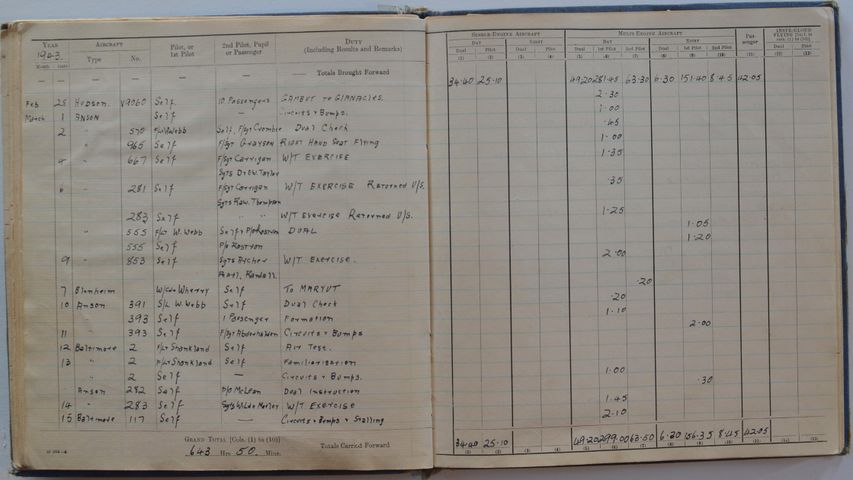 YEAR AIRCRAFT Pilot, or 2nd Pilot, Pupil DUTY SINGLE-ENGINE AIRCRAFT MULTI-ENGINE AIRCRAFT
1943 1st Pilot or Passenger (Including Results and Remarks) DAY NIGHT DAY NIGHT
Month Date Type No. Dual Pilot Dual Pilot Dual 1st Pilot 2nd Pilot Dual 1st Pilot 2nd Pilot Dual Pilot
(1) (2) (3) (4) (5) (6) (7) (8) (9) (10) (11) (12) (13)
— — — — — — — Totals Brought Forward 34.40 25.10 49.20 281.45 63.30 6.30 151.40 8.45 42.05
Feb 25 Hudson V9060 Self 10 Passengers GAMBUT to GIANACLIS. 2.30
March 1 ANSON Self — Circuits & Bumps. 1.00
2 " 570 F/Lt W. Webb Self, F/Sgt Crombie Dual Check .45
" 965 Self F/Sgt Grayson Right Hand Seat Flying 1.00
4 " 667 Self F/Sgt Carrigan W/T EXERCISE 1.35
6 " 281 Self F/Sgt Carrigan W/T EXERCISE Returned U/S. .35
Sgts Raw. Thompson
283 Self " " W/T Exercise Returned U/S. 1.25
" 555 F/Lt W. Webb Self & P/O Rostron DUAL 1.05
555 Self P/O Rostron 1.20
9 " 853 Self Sgts Archer W/T EXERCISE. 2.00
7 Blenheim W/Cdr Wherry Self To MARYUT .20
10 Anson 391 S/L W. Webb Self Dual Check .20
393 Self 1 Passenger Formation 1.10
11 " 393 Self F/Sgt Abderhalden Circuits & Bumps 2.00
12 Baltimore 2 F/Lt Shankland Self Air Test.
13 " 2 F/Lt Shankland Self Familiarisation
" 2 Self — Circuits & Bumps. 1.00
Anson 282 Self P/O McLean Dual Instruction .30
14 " 283 Self W/T EXERCISE 1.45
15 Baltimore 117 Self — Circuits & Bumps & Stalling 2.10
GRAND TOTAL [Cols. (1) to (10)] Totals Carried Forward 34.40 25.10 49.20 299.00 63.50 6.30 156.35 8.45 42.05
643 Hrs 50. Mins.
(1) (2) (3) (4) (5) (6) (7) (8) (9) (10) (11) (12) (13)